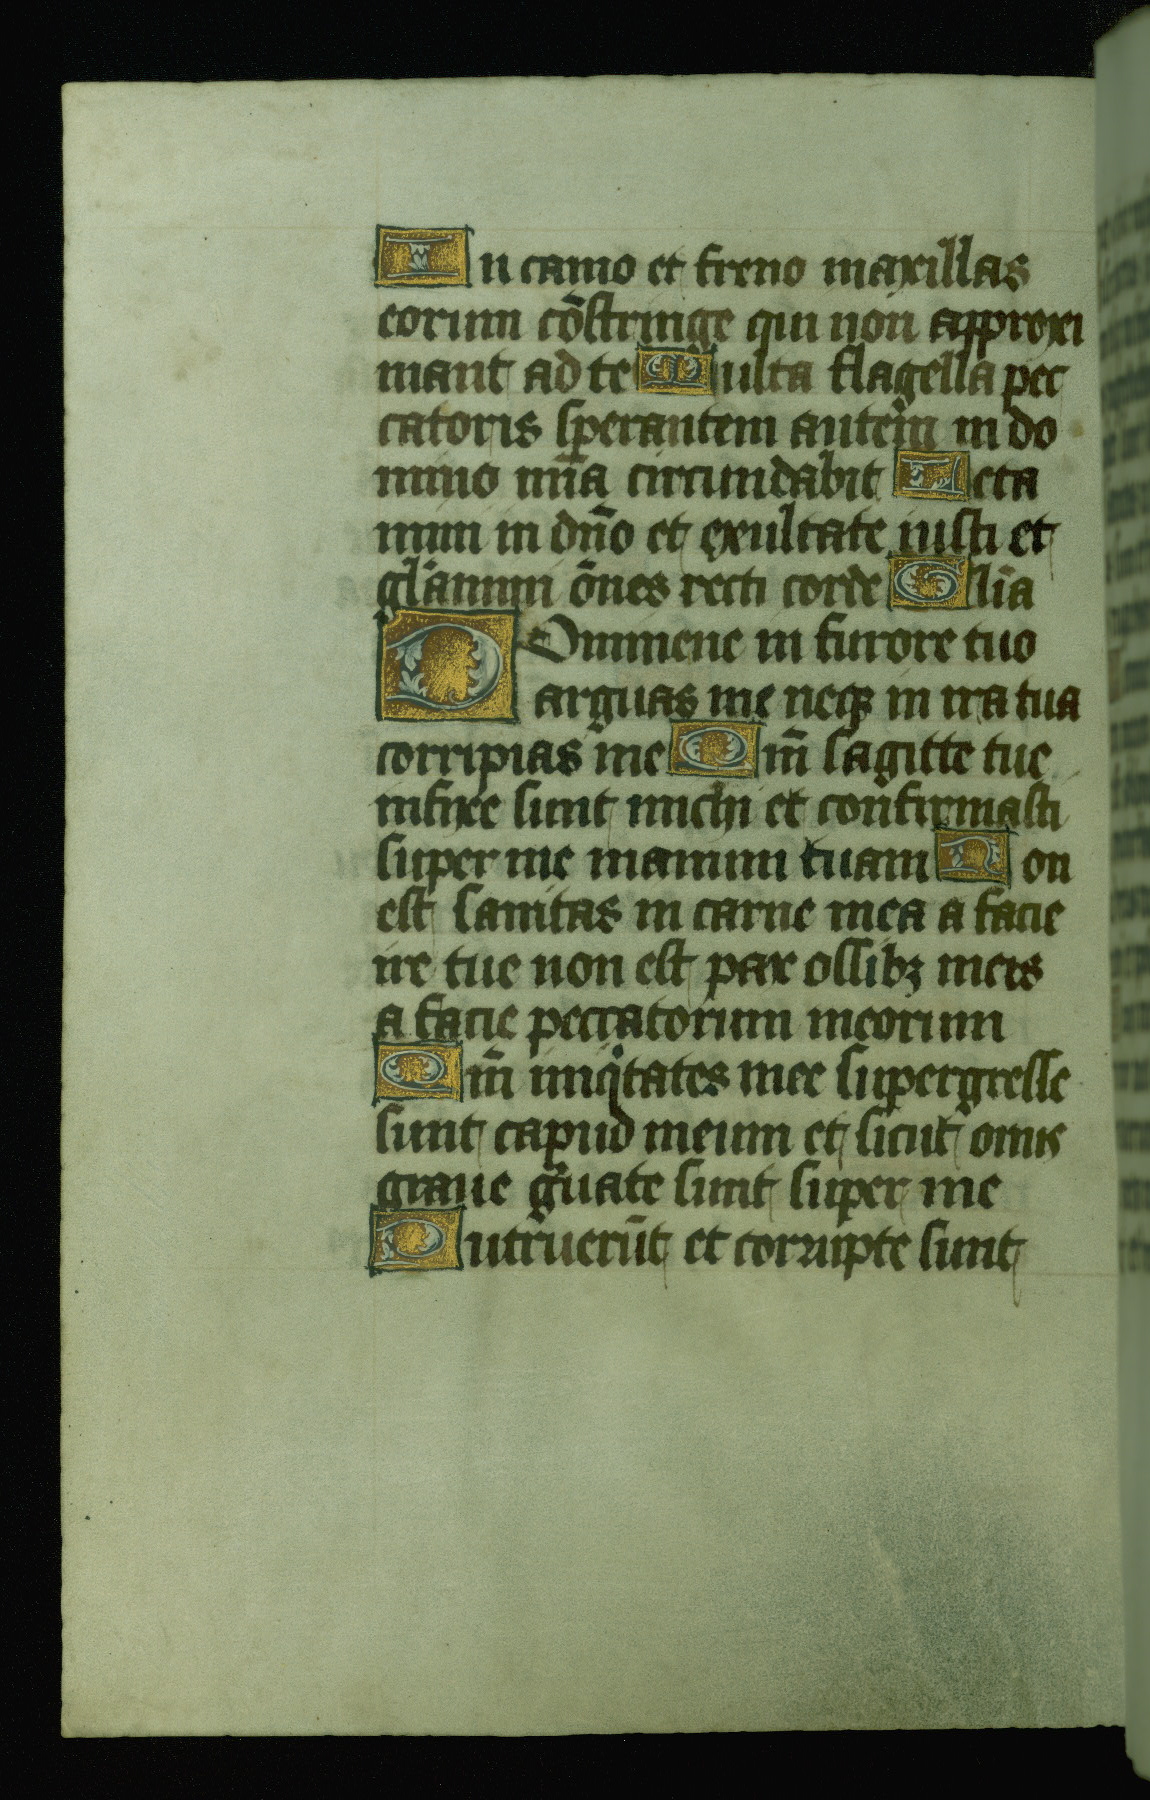 In camo et freno maxillas
eorum cōstringe qui non approxi
mant ad te Multa flagella pec
catoris sperantem autem in do
mino mīa circumdabit Leta
mini in dño et exultate iusti et
gl'amini ōnes recti corde Glīa
DOmine ne in furore tuo
arguas me neqȝ in ira tua
corripias me Qm̄ sagitte tue
infixe sunt michi et confirmasti
super me manum tuam Non
est sanitas in carne mea a facie
ire tue non est pax ossibȝ meis
a facie peccatorum meorum
Qm̄ iniqitates mee supergresse
sunt capud meum et sicut onus
graue g̃uate sunt super me
Putruerūt et corrupte sunt